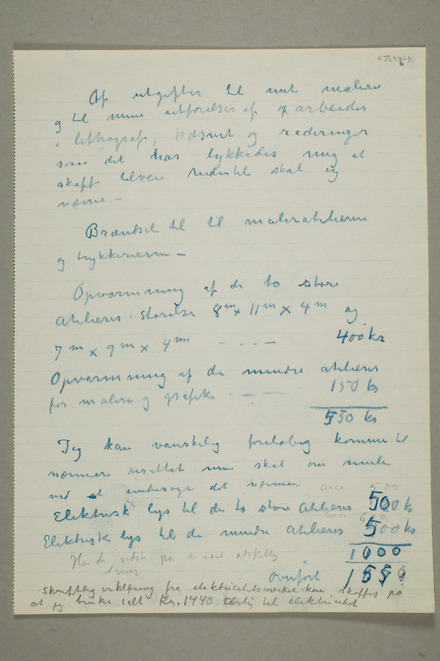 Af utgifter til mit maleri
og til min utførelse af arbeider
i lithografi, træsnit og raderinger
som det har lykkedes mig at
skaft tilveie skal jeg
nævne –
Brændsel til til maleratelierne
og trykkerierne –
Opvarmning af de to store
atelierer størrelse 8m x 11m x 4m og
7m x 9m x 4m - - - - 400 kr
Opvarmning af de mindre atelierer
for maleri og grafik - - - 150 kr
550 kr
Jeg kan vanskelig foreløbig komme til
nærmere resultat men skal om
ved at undersøge det nærmere
circa 500
Elektrisk lys til de to store atelierer 500 kr
Elektrisk lys til de mindre atelierer 500 kr
1000
overført 1550
skriftlig erklæring fra elektricitetsværket kan skaffes på
at jeg bruker Kr. 1440 til elektricitet